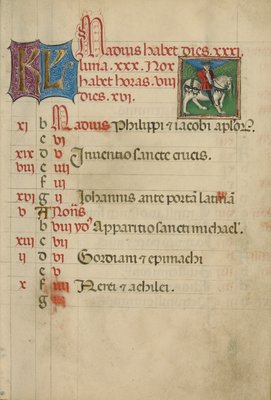 KL Madius habet dies. xxxi.
luna. xxx. Nox
habet horas. viii
dies. xvi.
xi b Madius Philippi ⁊ iacobi aplorͦ.
c
xix d v Inventio sancte crucis.
viii e
f iii
xvi g ii Iohannis ante portā latinā
v A Nonis
b viii ydꝰ Apparitio sancti michael'.
xiii c vii
ii d vi Gordiani ⁊ epimachi
e v
x f iiii Nerei ⁊ achilei.
g iii